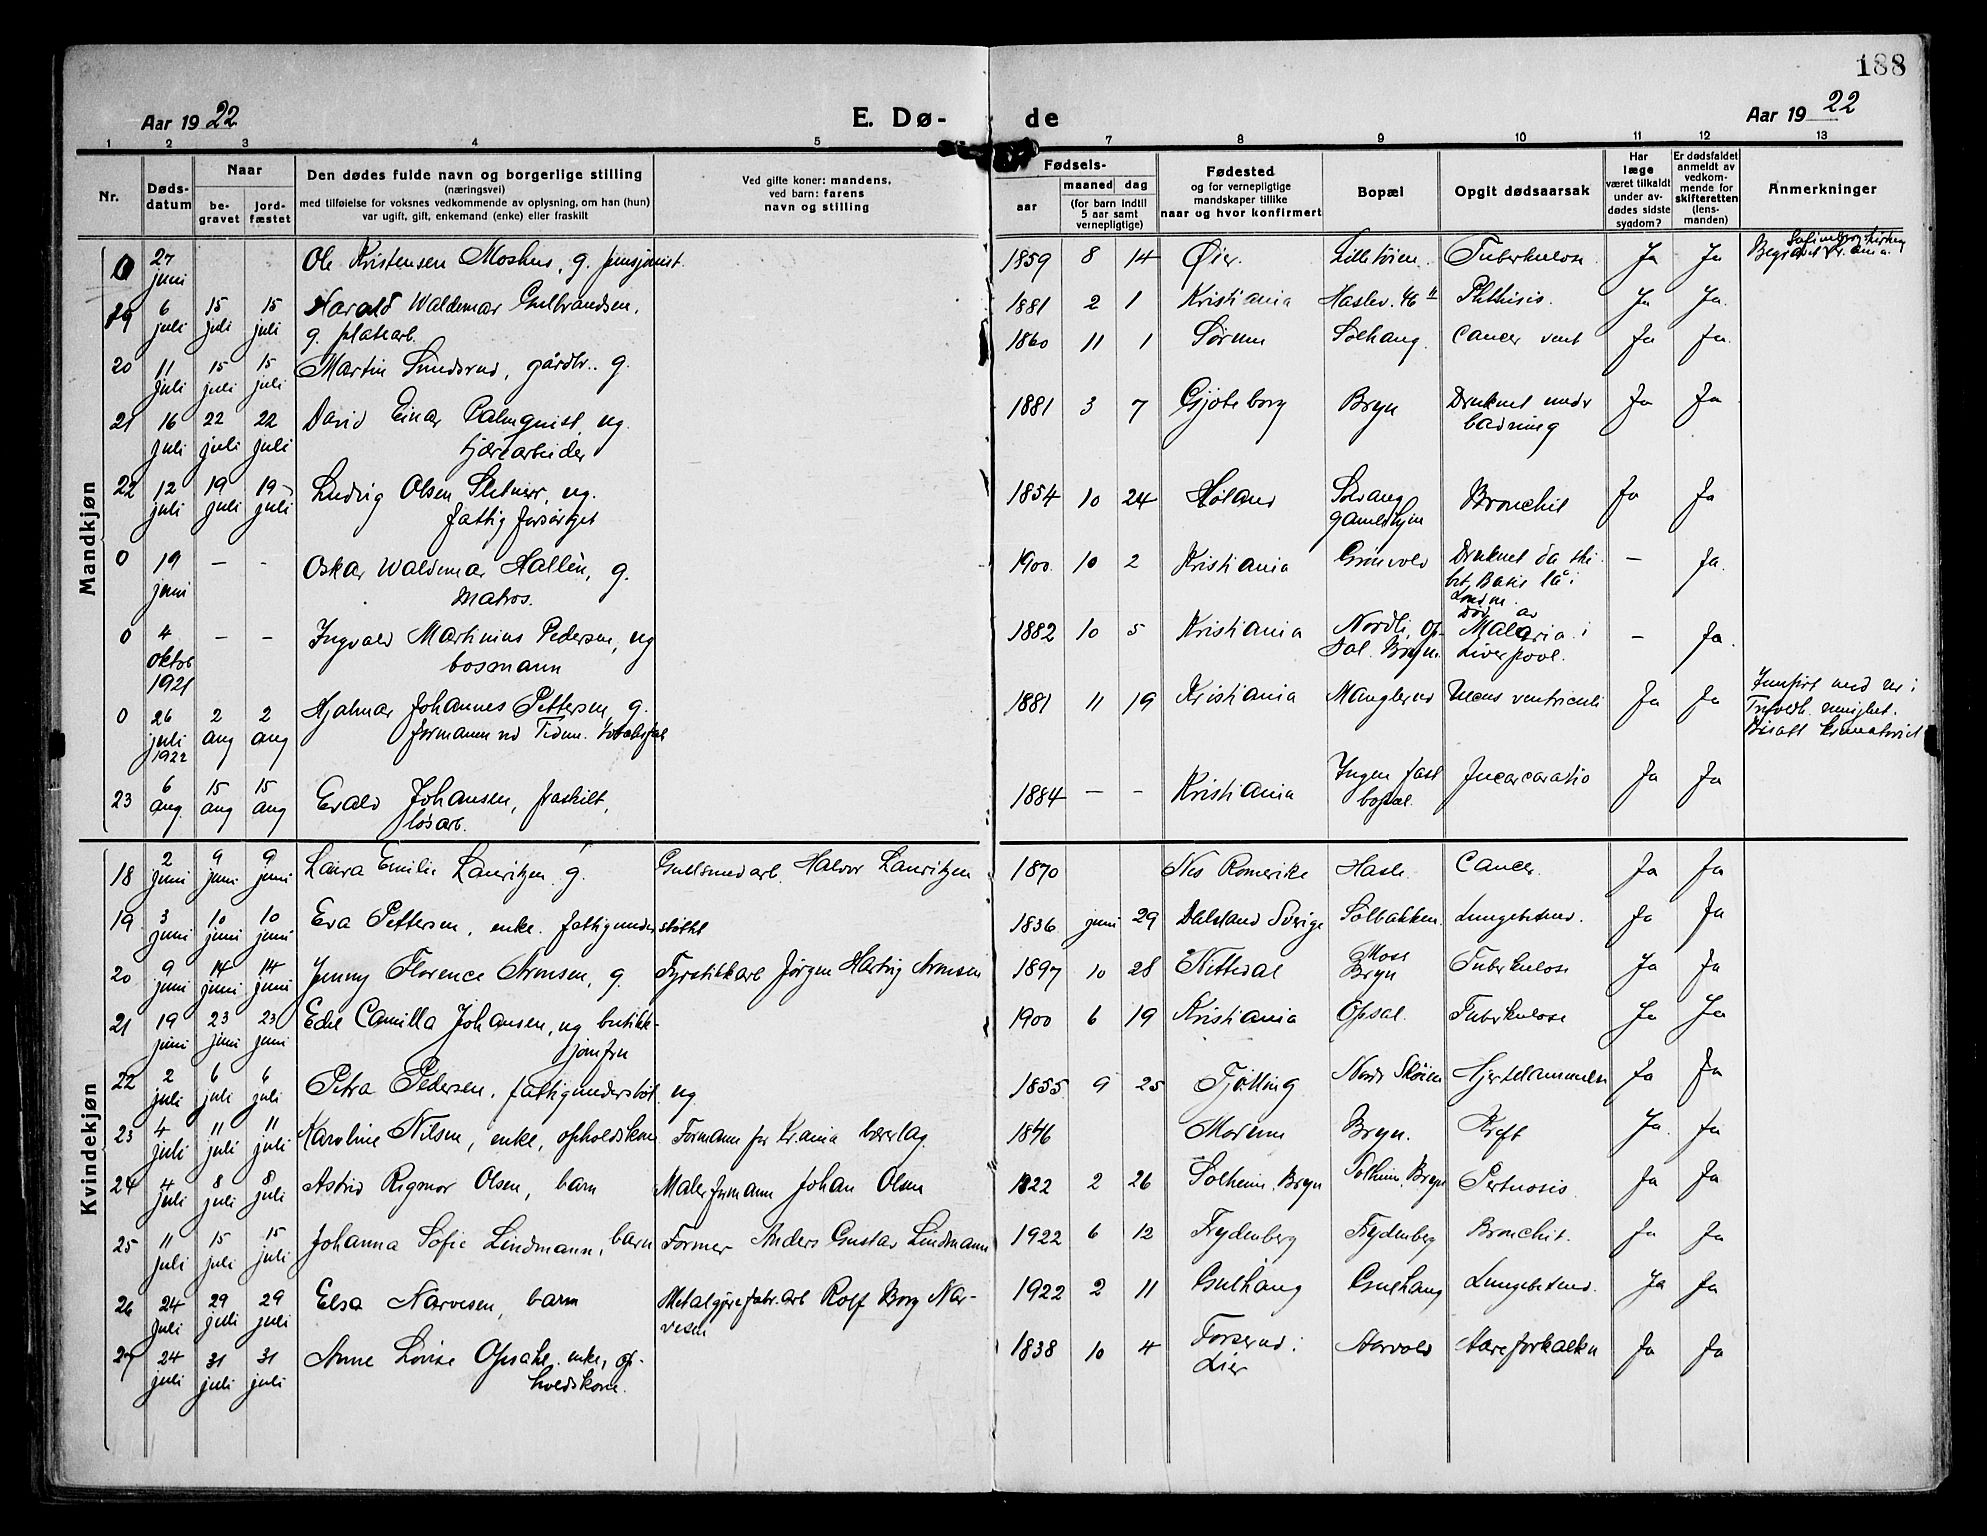 188
Aar 1922 E. Dø- de Aar 1922
1 2 3 4 5 7 8 9 10 11 12 13
Nr.
Døds-
datum
Naar
be-
gravet
jord-
fæstet
Den dødes fulde navn og borgerlige stilling
(næringsvei)
med tilføielse for voksnes vedkommende av oplysning, om han (hun)
var ugift, gift, enkemand (enke) eller fraskilt
Ved gifte koner: mandens,
ved barn: farens
navn og stilling
Fødsels-
aar
maaned dag
(for barn indtil
5 aar samt
vernepligtige)
Fødested
og for vernepligtige
mandskaper tillike
naar og hvor konfirmert
Bopæl
Opgit dødsaarsak
Har
læge
været tilkaldt
under av-
dødes sidste
sygdom?
Er dødsfaldet
anmeldt av
vedkom-
mende for
skifteretten
(lens-
manden)
Anmerkninger
Mandkjøn
0 27 juni Ole Kristensen Moshus, g. pensjonist. 1859 8 14 Øier. Lilletöien. Tuberkulose Ja Ja
19 6 juli 15 juli 15 juli Harald Waldemar Gulbrandsen, 1881 2 1 Kristiania Haslev. 46 II Phthisis. Ja Ja.
g. platearb.
20 11 juli 15 juli 15 juli Martin Sundsrud, gårdbr. g. 1860 11 1 Sørum Solhaug. Cancer vent Ja Ja.
21 16 juli 22 juli 22 juli David Einar Palmquist, ug. 1881 3 7 Gjøteborg Bryn Druknet under Ja Ja
tjærearbeider badning
22 12 juli 19 juli 19 juli Ludvig Olsen Sletner, ug. 1854 10 24 Høland Solvang Bronchit Ja Ja
fattig forsörget gamlehjem
0 19 juni – - Oskar Waldemar Hallén, g. 1900. 10 2 Kristiania Grönvold Druknet da ski- – Ja.
Matros. bet, Basis lå i
London.
0 4 oktob 1921 – – Ingvald Martinius Pedersen, ug 1882 10 5 Kristiania Nordli, Op- Död av Malaria i – Ja.
bosmann sal. Bryn. Liverpool.
0 26 juli 1922 2 aug 2 aug Hjalmar Johannes Pettersen g. 1881 11 19 Kristiania Manglerud Ulcus ventriculi Ja Ja
formann ved Tidem. tobaksfab
23 6 aug. 15 aug 15 aug Evald Johansen, fraskilt, 1884 – – Kristiania Ingen fast Incarceratio Ja Ja
løsarb. bopæl.
Kvindekjøn
18 2 juni 9 juni 9 juni Laura Emilie Lauritzen g. Gullsmedarb. Halvor Lauritzen 1870 Nes Romerike Hasle. Cancer. Ja Ja
19 3 juni 10 juni 10 juni Eva Pettersen, enke. fattigunderstöttet 1836 juni 29 Dalsland Sverige Solbakken. Lungebetend. Ja Ja
20 9 juni 14 juni 14 juni Jenny Florence Aronsen, g. Fyrstikkarb Jørgen Hartvig Aronsen 1897 10 28 Nittedal Moss Bryn Tuberkulose Ja Ja
21 19 juni 23 juni 23 juni Edel Camilla Johansen, ug butikk- 1900 6 19 Kristiania Opsal. Tuberkulose Ja Ja
jomfru
22 2 juli 6 juli 6 juli Petra Pedersen, fattigunderstöt. ug. 1855. 9 25 Tjölling Nordr Skøien Hjertelammelse Ja Ja
23 4 juli 11 juli 11 juli Karoline Nilsen, enke, opholdskone Formann for Krania 1846 Modum Bryn. Kreft Ja. Ja
24 4 juli 8 juli 8 juli Astrid Rigmor Olsen, barn Malerformann Johan Olsen 1922 2 26 Solheim, Bryn Solheim, Bryn Pertussis. Ja Ja
25 11 juli 15 juli 15 juli Johanna Sofie Lindmann, barn Former Anders Gustav Lindmann 1922 6 12 Frydenberg Frydenberg Bronchit. Ja Ja
26 24 juli 29 juli 29 juli Elsa Narvesen, barn Metalgjørefabr.arb Rolf Borg Nar- 1922 2 11 Gulhaug Gulhaug Lungebetend. Ja Ja
vesen
27 24 juli 31 juli 31 juli Anne Lovise Opsahl, enke, op- 1838 10 4 Forserud i Aarvold Aareforkalkn Ja Ja
holdskone. Lier